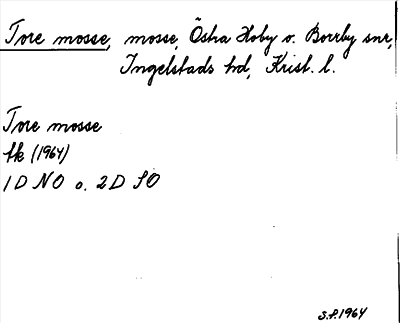 Tore mosse, mosse, Östra Hoby o. Borrby snr,
Ingelstads hd, Krist. l.
Tore mosse
Ek (1964)
1D NO o. 2D SO
S.P. 1964